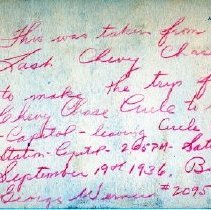 This was taken from
Last Chevy Chase
to make the trip f
Chevy Chase Circle to
- Capitol - leaving Circle
Station 2:05 PM - Sat
September 19th 1936. B
George #2095